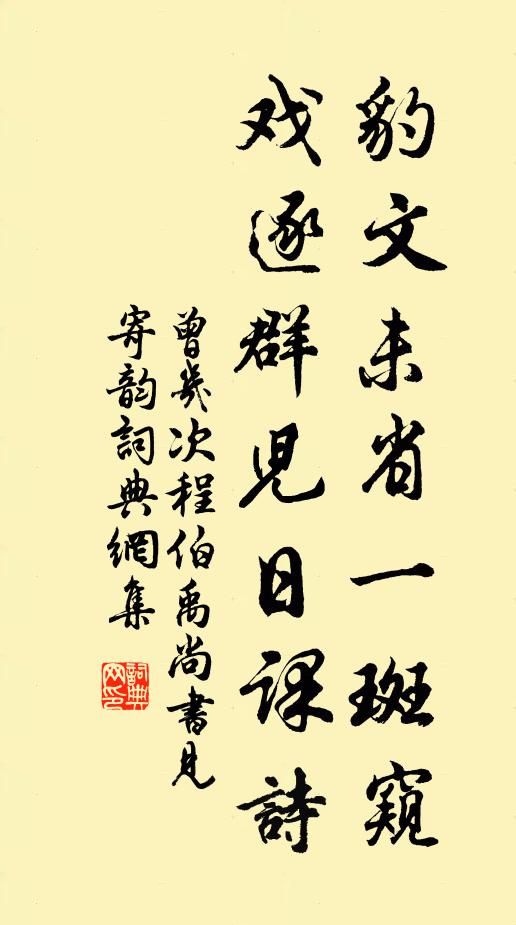 豹文未省一斑窺
戏逐群児日课詩
曾幾次程伯禹尚書見
寄韵詞典網集
詞典网印